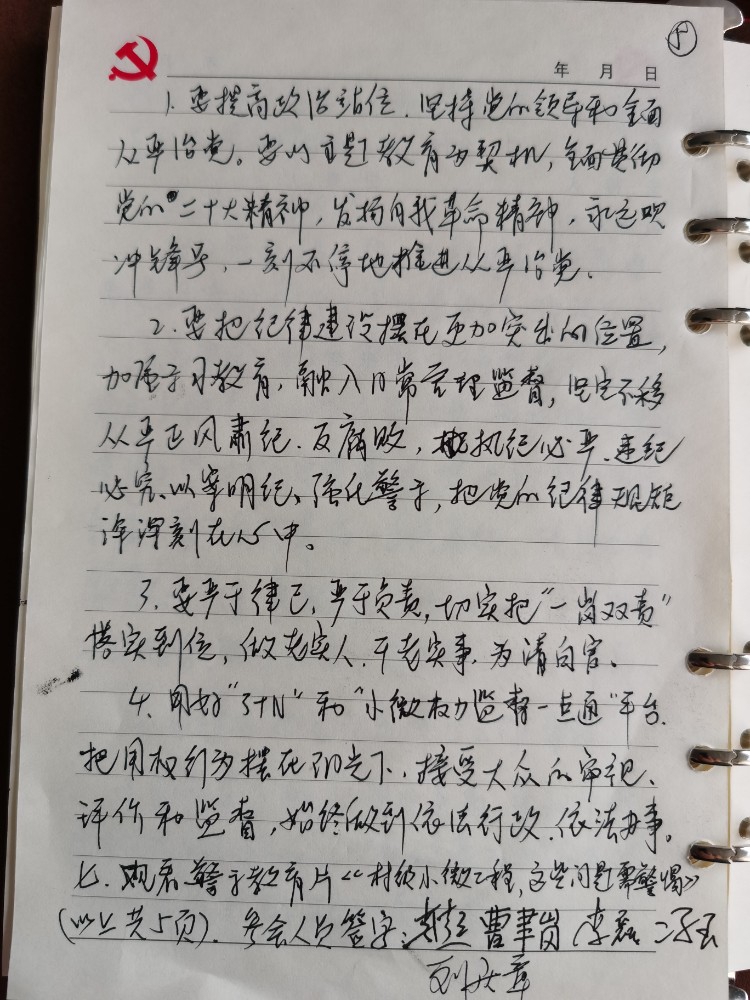 5
年 月 日
1. 要提高政治站位、坚持党的领导和全面
从严治党。要以主题教育为契机,全面贯彻
党的二十大精神,发扬自我革命精神,永远吹
冲锋号,一刻不停地推进从严治党。
2. 要把纪律建设摆在更加突出的位置,
加强学习教育,融入日常管理监督,坚定不移
从严正风肃纪、反腐败,执纪必严、违纪
必究、以案明纪、强化警示,把党的纪律规矩
深深刻在心中。
3. 要严于律己,严于负责,切实把“一岗双责”
落实到位,做老实人、干老实事、为清白官。
4. 用好“3+N”和“小微权力监督一点通”平台,
把用权行为摆在阳光下、接受大众的审视、
评价和监督,始终做到依法行政、依法办事。
七、观看警示教育片《村级小微工程,这些问题需警惕》
(以上共5页)。参会人员签字: 曹 岗 李磊
刘